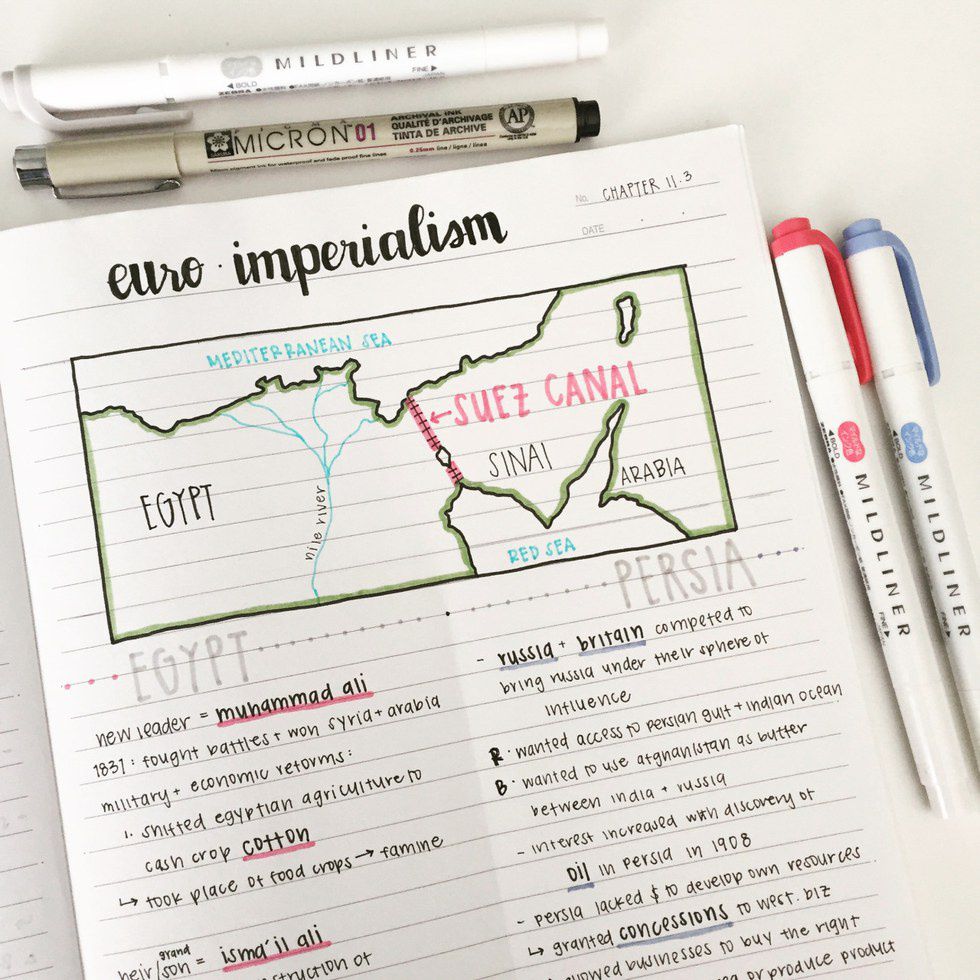 MILDLINER
BOLD
FINE
ZEBRA
SAKURA
MICRON 01
ARCHIVAL INK
QUALITÉ D'ARCHIVAGE
TINTA DE ARCHIVE
AP
0.25mm line / ligne / linea
Micron pigment ink for waterproof and fade proof fine lines
No. CHAPTER 11.3
DATE
euro · imperialism
MEDITERRANEAN SEA
←SUEZ CANAL
SINAI
ARABIA
EGYPT
nile river
RED SEA
EGYPT
new leader = muhammad ali
1831: fought battles + won syria + arabia
military + economic reforms:
1. shifted egyptian agriculture to
cash crop cotton
↳ took place of food crops → famine
heir/grandson = isma'il ali
construction of
PERSIA
- russia + britain competed to
bring russia under their sphere of
influence
R · wanted access to persian gulf + indian ocean
B · wanted to use afghanistan as butter
between india + russia
- interest increased with discovery of
oil in persia in 1908
- persia lacked $ to develop own resources
↳ granted concessions to west. biz
allowed businesses to buy the right
or produce product
BOLD
MILDLINER
FINE
BOLD
MILDLINER